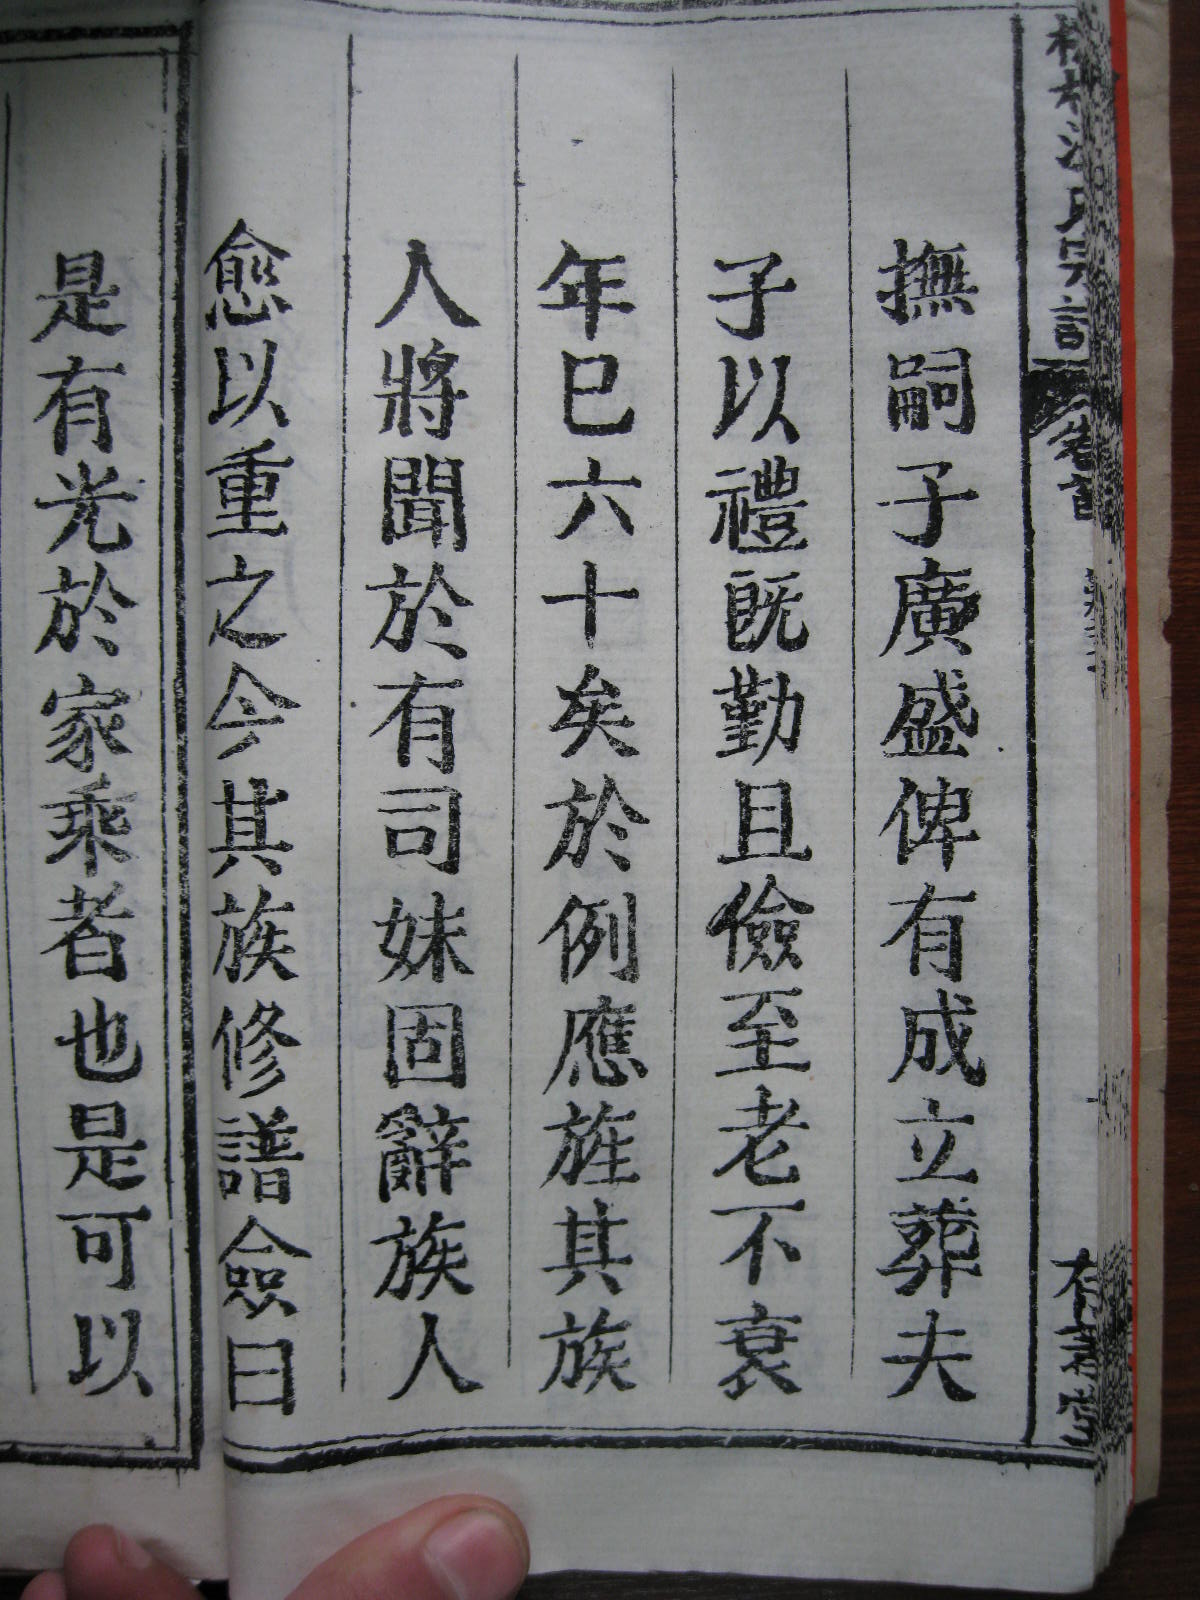 氏宗譜
撫嗣子廣盛俾有成立葬夫
子以禮既勤且儉至老不衰
年巳六十矣於例應旌其族
人將聞於有司妹固辭族人
愈以重之今其族修譜僉曰
是有光於家乘者也是可以